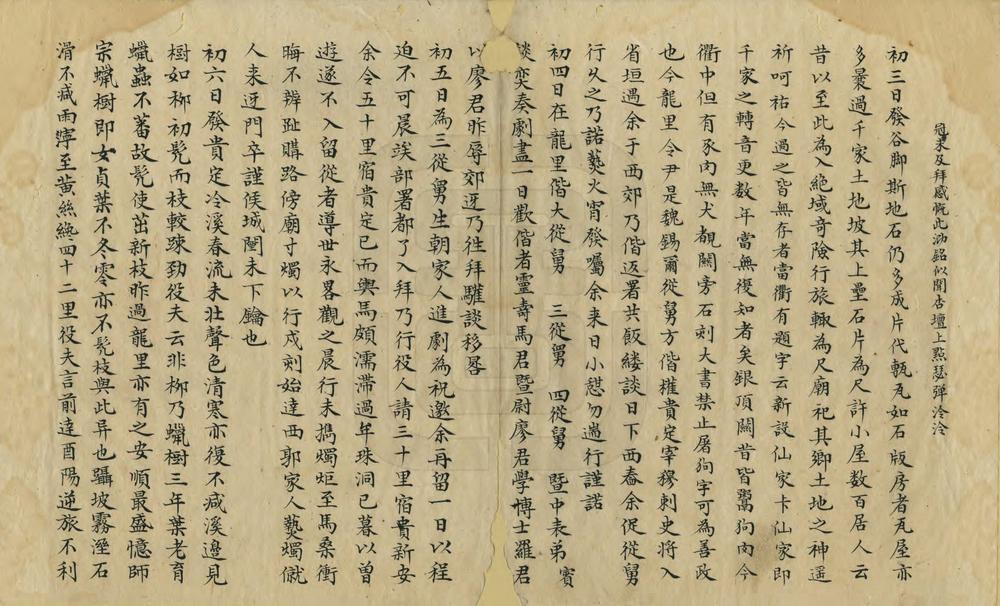 冠束及拜感慨此沏銘似聞杏壇上㸃瑟弹泠泠
初三日發谷脚斯地石仍多成片代甎瓦如石版房者瓦屋亦
多㬥過千家土地坡其上壘石片為尺許小屋数百居人云
昔以至此為入絶域奇險行旅輙為尺廟祀其鄉土地之神遥
祈呵祐今過之皆無存者當衢有題字云新設仙家卡仙家即
千家之轉音更数年當無復知者矣銀頂關昔皆鬻狗肉今
衢中但有豕肉無犬覩關旁石刻大書禁止屠狗字可為善政
也今龍里令尹是魏錫爾從舅方偕權貴定宰穆刺史将入
省垣遇余于西郊乃偕返署共飯縷談日下西舂余促從舅
行乆之乃諾爇火宵發囑余来日小憇勿遄行謹諾
初四日在龍里偕大從舅　三從舅　四從舅　暨中表弟賓
談奕奏劇盡一日歡偕者靈壽馬君暨尉廖君學博士羅君
以廖君昨辱郊迓乃徃拜騹談移晷
初五日為三從舅生朝家人進劇為祝邀余再留一日以程
迫不可晨竢部署都了入拜乃行役人請三十里宿貴新安
余令五十里宿貴定已而輿馬頗濡滯過年珠洞已暮以曽
遊遂不入留從者導世永畧觀之晨行未擕燭炬至馬桑衝
晦不辨趾購路傍廟寸燭以行戍刻始達西郭家人爇燭僦
人来迓門卒謹候城闉未下鑰也
初六日發貴定冷溪春流未壮聲色清寒亦復不减溪邊見
樹如栁初髡而枝較踈勁役夫云非栁乃蠟樹三年葉老育
蠟蟲不蕃故髡使茁新枝昨過龍里亦有之安順最盛憶師
宗蠟樹即女貞葉不冬零亦不髡枝與此异也躡坡霧溼石
滑不减雨濘至黄絲縿四十二里役夫言前逹酉陽逆旅不利